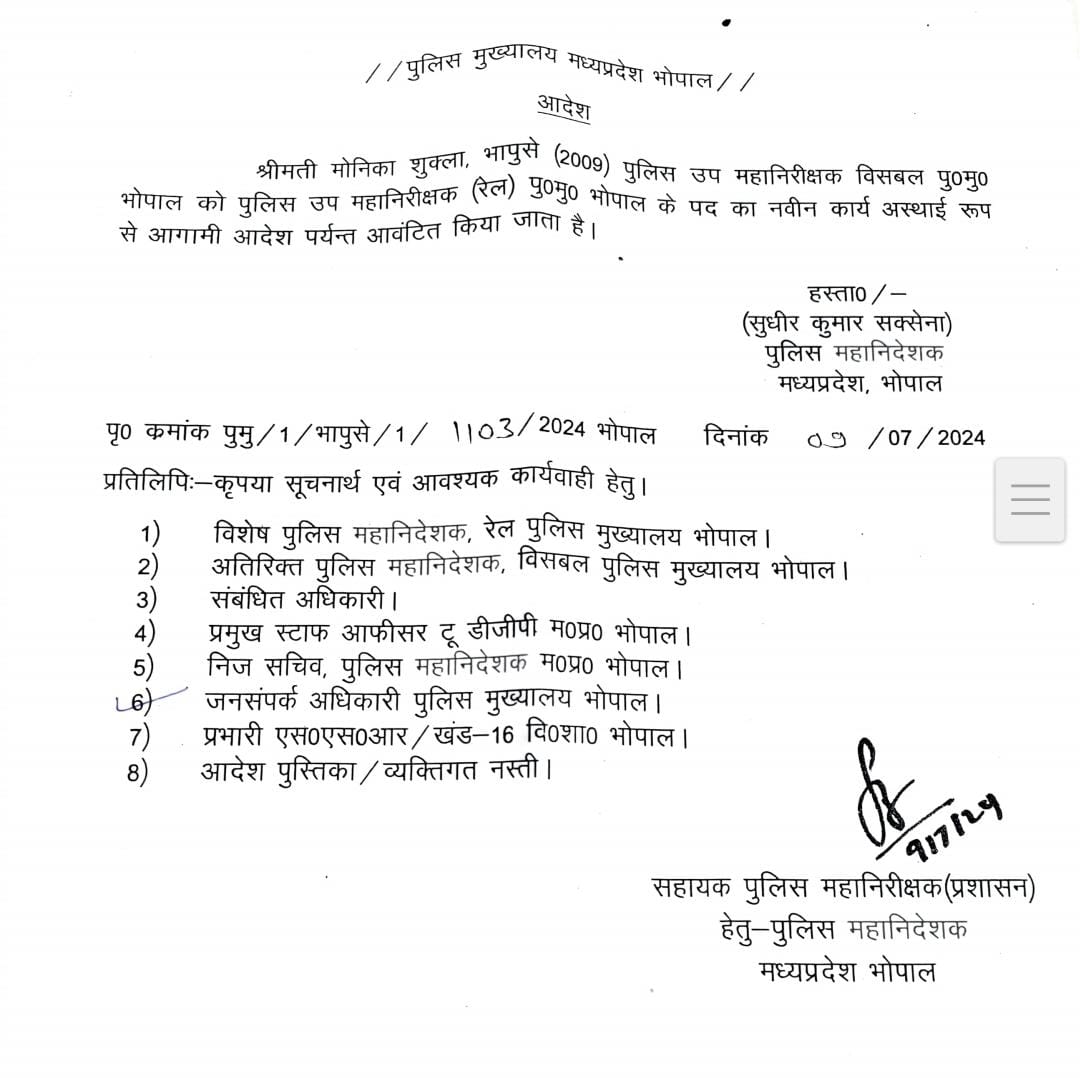 //पुलिस मुख्यालय मध्यप्रदेश भोपाल//
आदेश
श्रीमती मोनिका शुक्ला, भापुसे (2009) पुलिस उप महानिरीक्षक विसबल पु0मु0
भोपाल को पुलिस उप महानिरीक्षक (रेल) पु0मु0 भोपाल के पद का नवीन कार्य अस्थाई रूप
से आगामी आदेश पर्यन्त आवंटित किया जाता है।
हस्ता0/–
(सुधीर कुमार सक्सेना)
पुलिस महानिदेशक
मध्यप्रदेश, भोपाल
पृ0 कमांक पुमु/1/भापुसे/1/ 1103/2024 भोपाल दिनांक 09 /07/2024
प्रतिलिपिः–कृपया सूचनार्थ एवं आवश्यक कार्यवाही हेतु।
1) विशेष पुलिस महानिदेशक, रेल पुलिस मुख्यालय भोपाल।
2) अतिरिक्त पुलिस महानिदेशक, विसबल पुलिस मुख्यालय भोपाल।
3) संबंधित अधिकारी।
4) प्रमुख स्टाफ आफीसर टू डीजीपी म0प्र0 भोपाल।
5) निज सचिव, पुलिस महानिदेशक म0प्र0 भोपाल।
6) जनसंपर्क अधिकारी पुलिस मुख्यालय भोपाल।
7) प्रभारी एस0एस0आर/खंड–16 वि0शा0 भोपाल।
8) आदेश पुस्तिका/व्यक्तिगत नस्ती।
9/7/24
सहायक पुलिस महानिरीक्षक(प्रशासन)
हेतु–पुलिस महानिदेशक
मध्यप्रदेश भोपाल